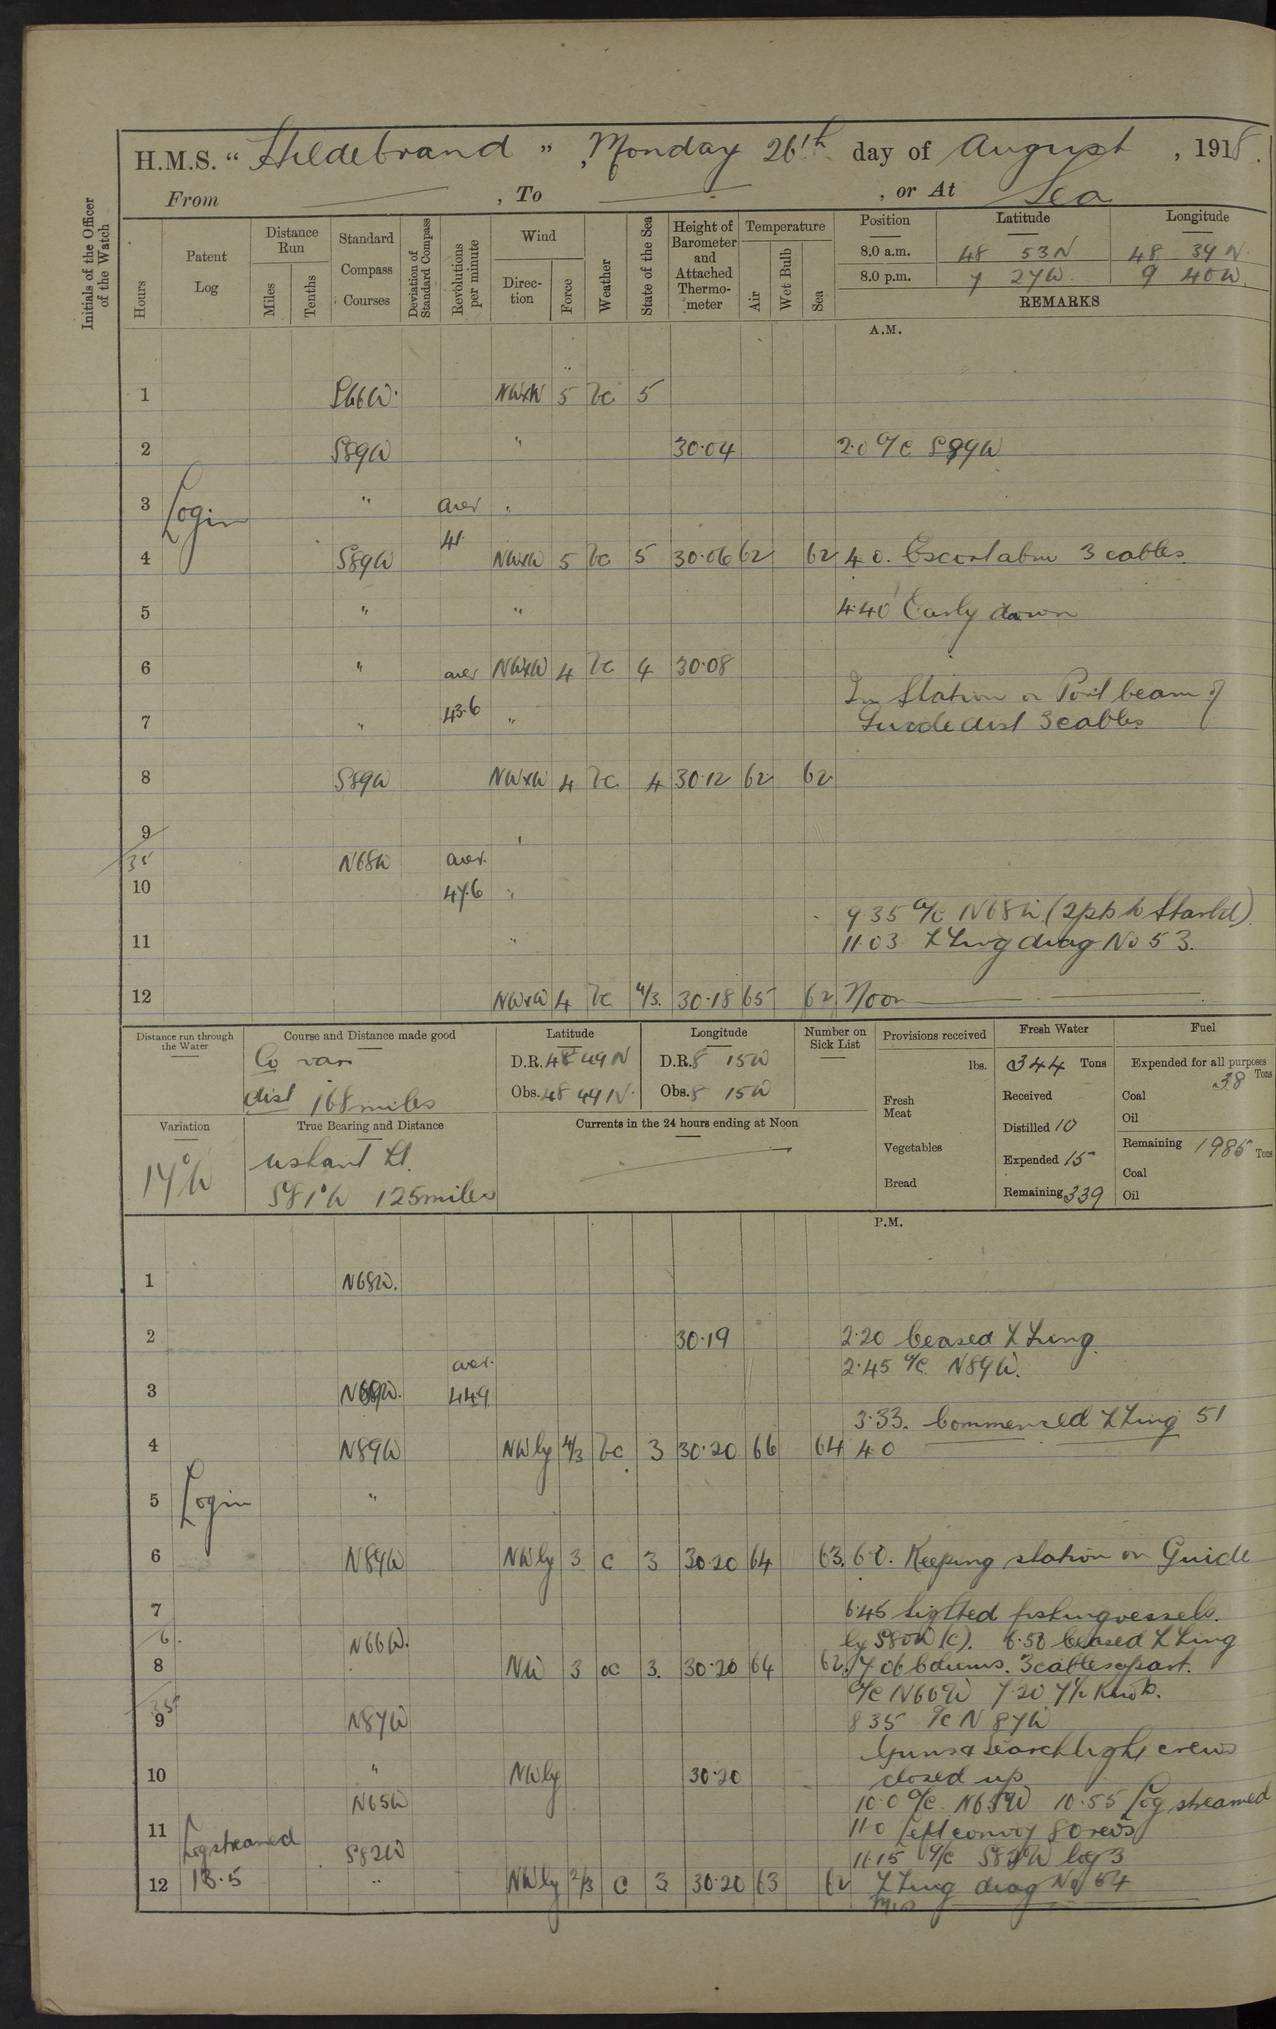 H.M.S. " Hildebrand " , Monday 26th day of August , 1918.
From — , To — , or At Sea
Initials of the Officer of the Watch
Hours
Patent Log
Distance Run
Miles
Tenths
Standard Compass Courses
Deviation of Standard Compass
Revolutions per minute
Wind
Direction
Force
Weather
State of the Sea
Height of Barometer and Attached Thermometer
Temperature
Air
Wet Bulb
Sea
Position Latitude Longitude
8.0 a.m. 48 53 N 48 39 N.
8.0 p.m. 7 27 W 9 40 W.
REMARKS
A.M.
1 S66W. NWxW 5 bc 5
2 S89W " 30.04 2.0 a/c S89W
3 Log in " aver "
4 S89W 41. NWxW 5 bc 5 30.06 62 62 4 0. Escort abm 3 cables.
5 " " 4.40 Early dawn
6 " aver NWxW 4 bc 4 30.08
In Station on Port beam of
7 " 43.6 " Guide dist 3 cables
8 S89W NWxW 4 bc 4 30.12 62 62
9 "
35 N68W aver.
10 47.6 "
9.35 a/c N68W. (2pts to Starbd)
11 " 11.03 ZZing diag No 53.
12 NWxW 4 bc 4/3. 30.18 65 62 Noon
Distance run through the Water
Course and Distance made good
Co var
dist 168 miles
Latitude
D.R. 48 49 N
Obs. 48 49 N.
Longitude
D.R. 8 15 W
Obs. 8 15 W
Number on Sick List
Provisions received
lbs.
Fresh Meat
Vegetables
Bread
Fresh Water
344 Tons
Received
Distilled 10
Expended 15
Remaining 339
Fuel
Expended for all purposes
38 Tons
Coal
Oil
Remaining 1985 Tons
Coal
Oil
Variation
14°W
True Bearing and Distance
Ushant Lt.
S81°W 125 miles
Currents in the 24 hours ending at Noon
P.M.
1 N68W.
2 30.19 2.20 Ceased ZZing.
aver. 2.45 a/c. N89W.
3 44.9
3.33. Commenced ZZing 51
4 N89W NWly 4/3 bc 3 30.20 66 64 4 0
5 Log in "
6 N89W NWly 3 c 3 30.20 64 63. 6 0. Keeping station on Guide
7 6.45 Sighted fishing vessels.
6. N66W. by S80W (c). 6.58 Ceased ZZing
8 NW 3 oc 3. 30.20 64 62. 7.06 Columns. 3 cables apart.
a/c N66W 7.20 7½ Knots.
35
9 N87W 8 35 a/c N 87W
Guns & Searchlight crews
10 " NWly 30.20 closed up
N65W 10.0 a/c. N65W 10.55 Log streamed
11 Log streamed 11.0 Left convoy 80 revs
S82W 11.15 a/c S82W log 3
12 13.5 " NWly 2/3 c 3 30.20 63 62 ZZing diag No 54